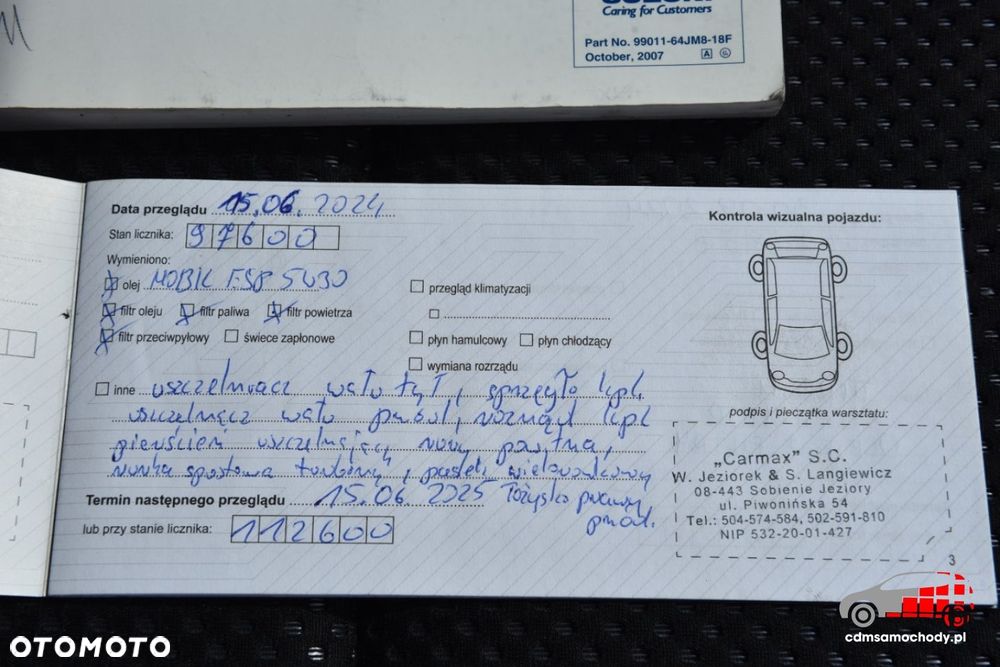 Caring for Customers
Part No. 99011-64JM8-18F
October, 2007 A
Data przeglądu 15.06.2024
Kontrola wizualna pojazdu:
Stan licznika: 97600
Wymieniono:
olej MOBIL ESP 5W30
przegląd klimatyzacji
filtr oleju filtr paliwa filtr powietrza
filtr przeciwpyłowy świece zapłonowe
płyn hamulcowy płyn chłodzący
wymiana rozrządu
inne uszczelniacz wału tył, sprzęgło kpl.
uszczelniacz wału przód, rozrząd kpl
pierścień uszczelniający rury
rurka turbiny, pasek wielorowkowy
Łożysko przód.
podpis i pieczątka warsztatu:
Termin następnego przeglądu 15.06.2025
lub przy stanie licznika: 112600
„Carmax” S.C.
W. Jeziorek & S. Langiewicz
08-443 Sobienie Jeziory
ul. Piwonińska 54
Tel.: 504-574-584, 502-591-810
NIP 532-20-01-427
3
OTOMOTO
cdmsamochody.pl